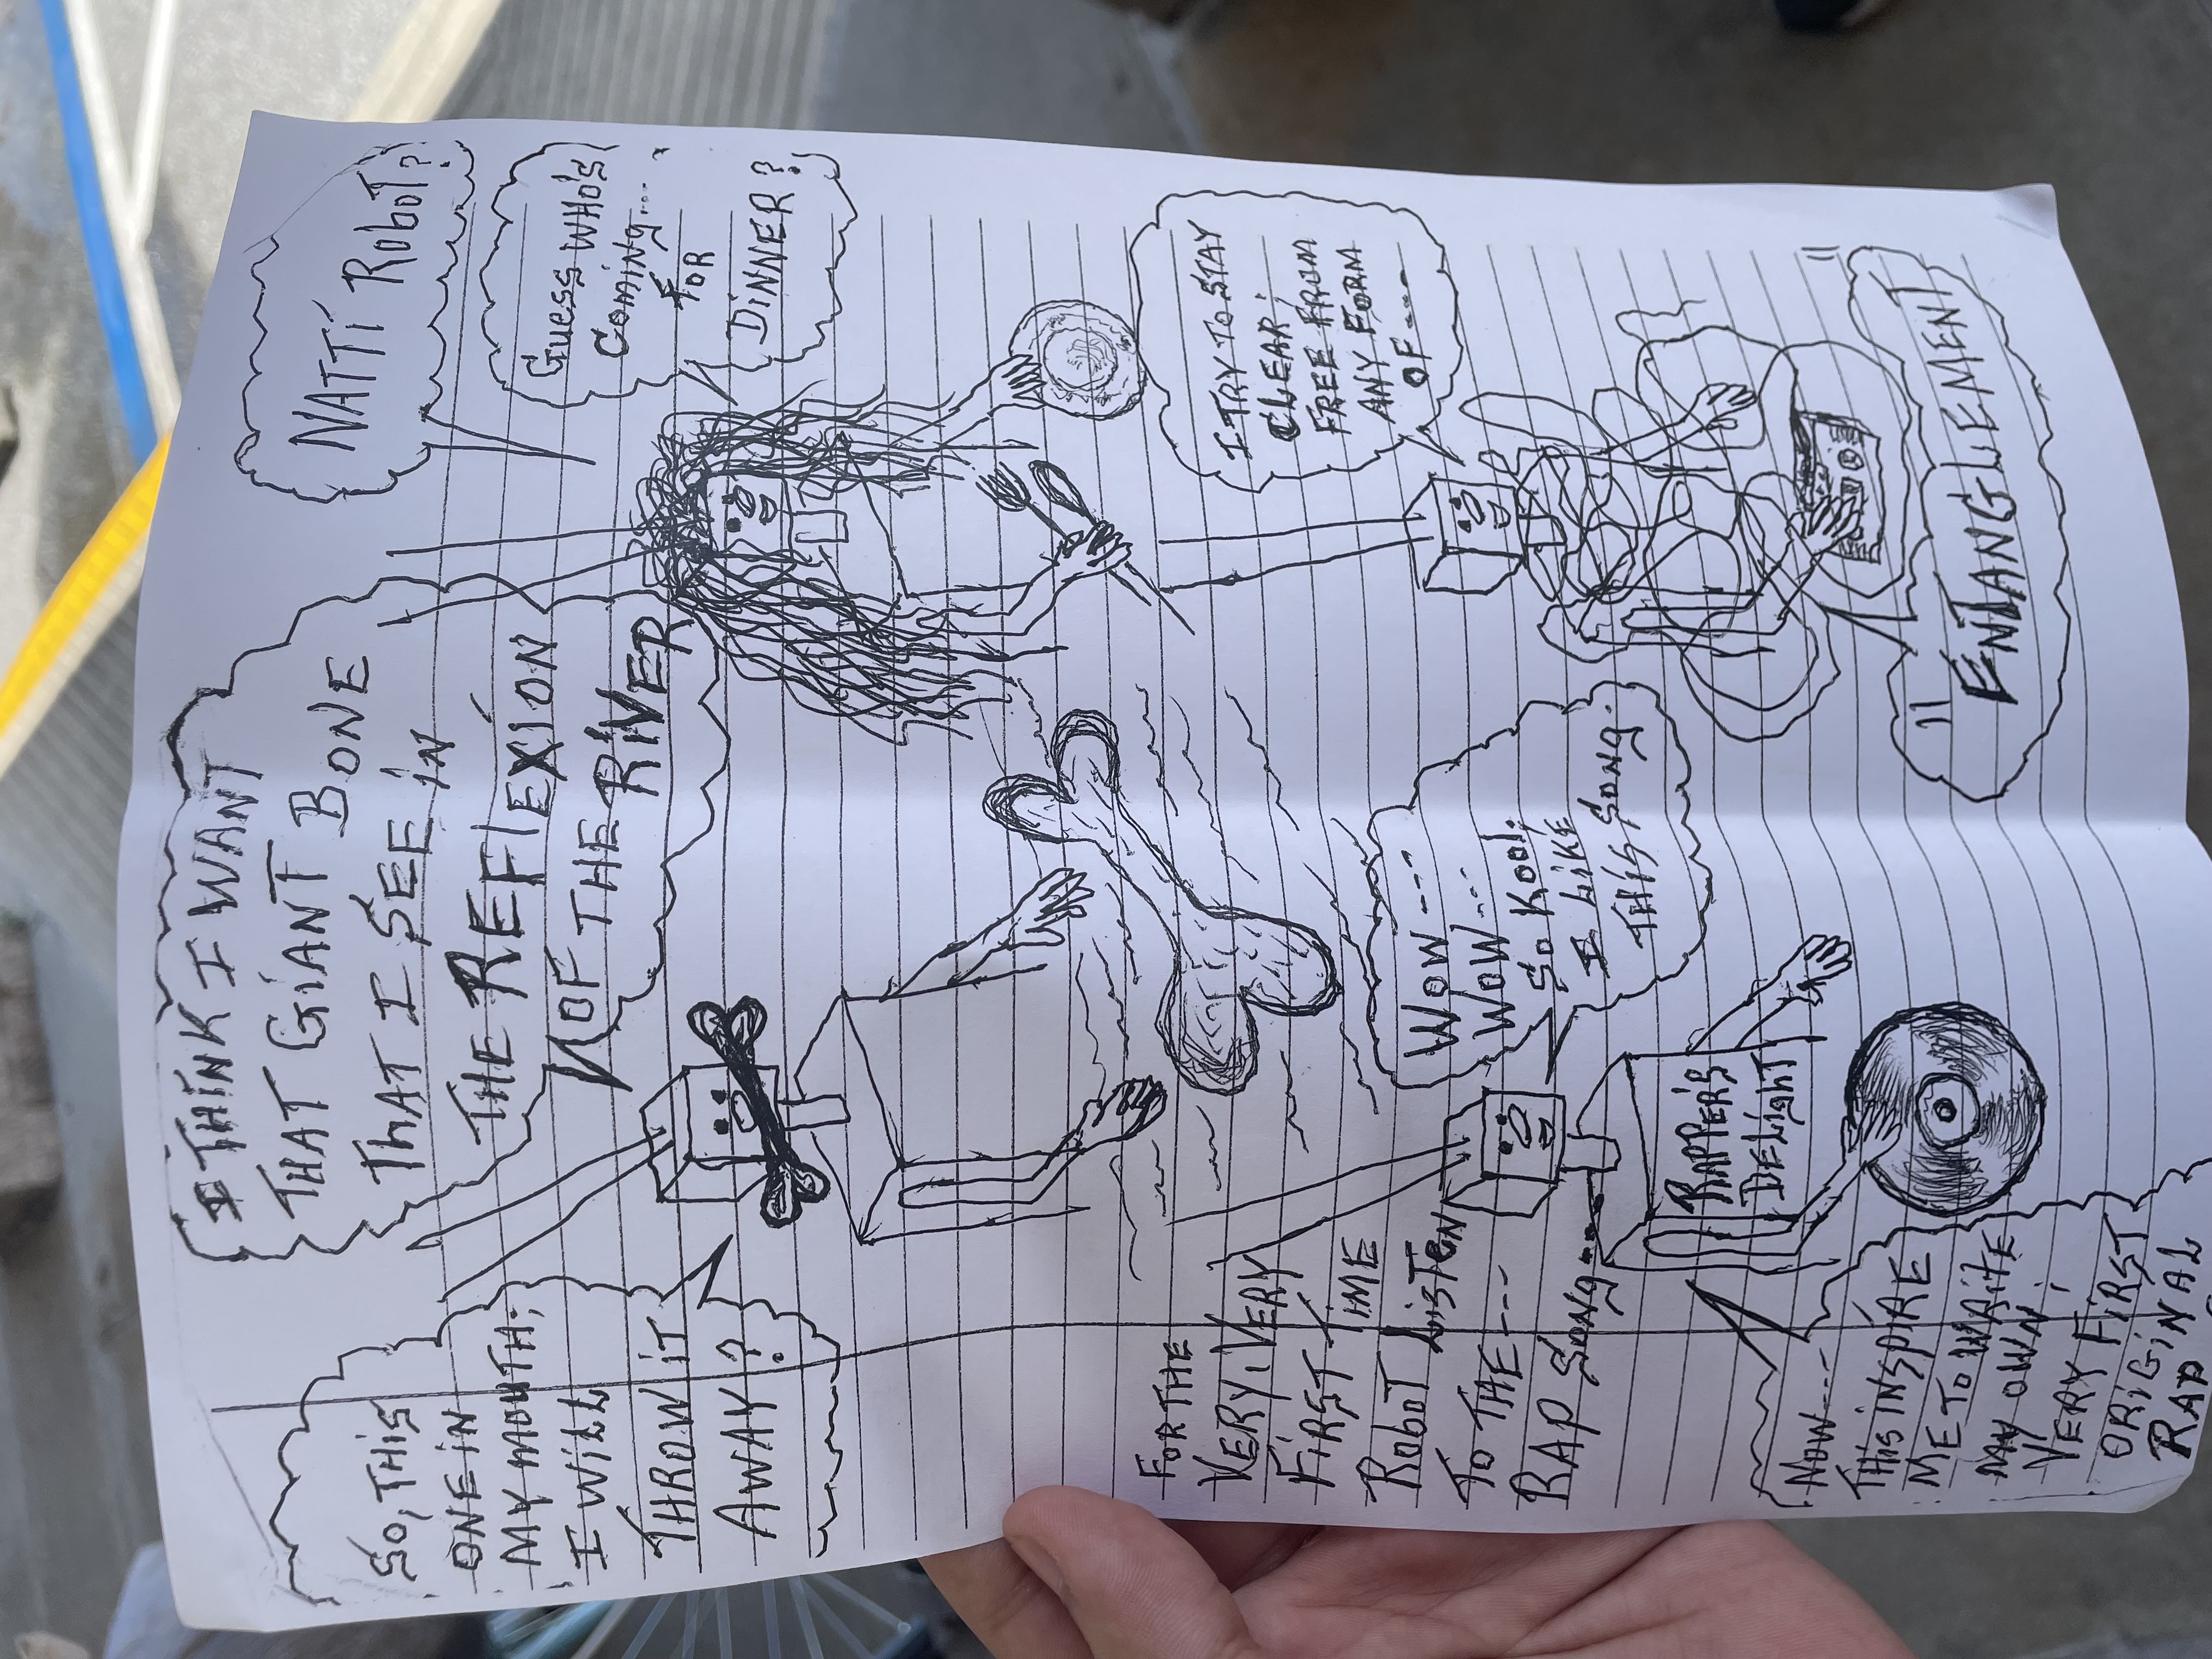 So, THIS
ONE IN
MY MOUTH;
I WILL
THROW IT
AWAY?
I THINK I WANT
THAT GIANT BONE
THAT I SEE IN
THE REFLEXION
OF THE RIVER
NATTI ROBOT?
GUESS WHO'S
COMING...
FOR
DINNER?
FOR THE
VERY, VERY
FIRST TIME
ROBOT LISTEN
TO THE ---
RAP SONG...
WOW ---
WOW...
SO KOOL;
I LIKE
THIS SONG.
RAPPER'S
DELIGHT
NOW ---
THIS INSPIRE
ME TO WRITE
MY OWN;
VERY FIRST
ORIGINAL
RAP
I TRY TO STAY
CLEAR;
FREE FROM
ANY FORM
OF ---
"ENTANGLEMENT"